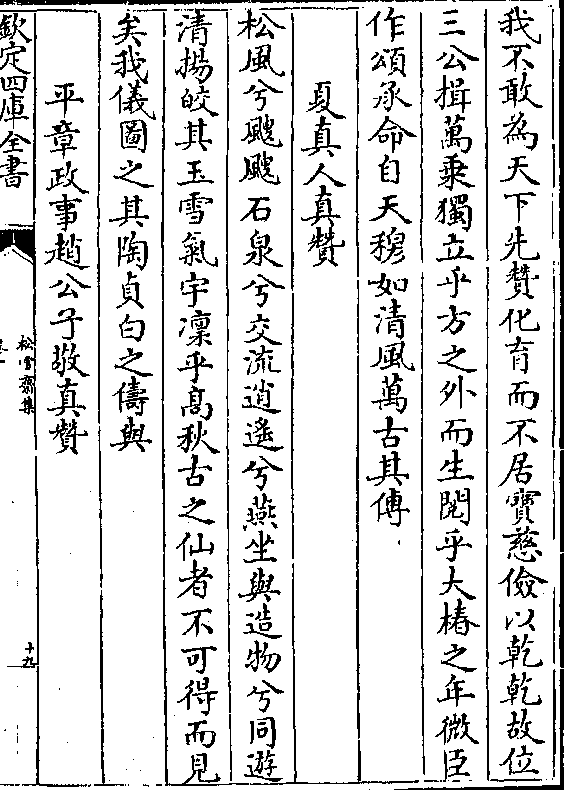 我不敢為天下先贊化育而不居寳慈儉以乾乾故位
三公揖萬乘獨立乎方之外而生閲乎大椿之年微臣
作頌承命自天穆如清風萬古其傳
夏真人真贊
松風兮颼颼石泉兮交流逍遙兮燕坐與造物兮同遊
清揚皎其玉雪氣宇凜乎髙秋古之仙者不可得而見
矣我儀圖之其陶貞白之儔與
平章政事趙公子敬真贊
欽定四庫全書
松雪齋集
十九